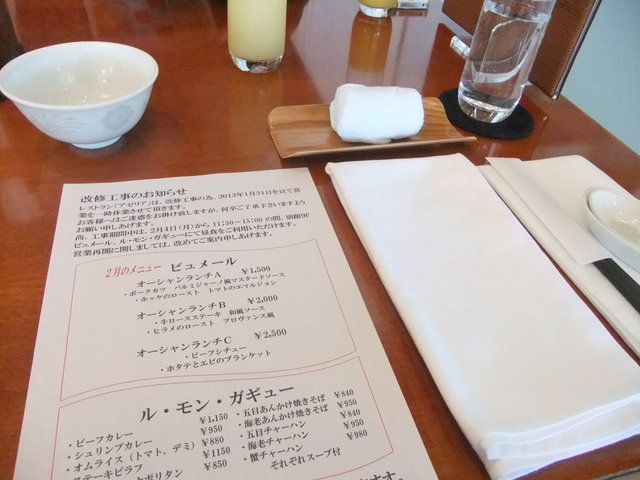 改修工事のお知らせ
レストラン「アゼリア」は、改修工事の為、2013年1月31日を以て営
業を一時休業させて頂きます。
お客様へはご迷惑をお掛け致しますが、何卒ご了承下さいますよう
お願い申しあげます。
尚、工事期間中は、2月4日(月)から 11:30～15:00 の間、別館9F
ビュメール、ル・モン・ガギューにて昼食をご利用いただけます。
営業再開に関しましては、改めてご案内申しあげます。
2月のメニュー ビュメール
オーシャンランチA ￥1,500
・ポークカツ パルミジャーノ風マスタードソース
・ホッケのロースト トマトのエマルジョン
オーシャンランチB ￥2,000
・牛ロースステーキ 和風ソース
・ヒラメのロースト プロヴァンス風
オーシャンランチC ￥2,500
・ビーフシチュー
・ホタテとエビのブランケット
ル・モン・ガギュー
・ビーフカレー ￥1,150
・シュリンプカレー ￥950
・オムライス(トマト、デミ) ￥880
ステーキピラフ ￥1150
ポリタン ￥850
・五目あんかけ焼きそば ￥840
・海老あんかけ焼きそば ￥950
・五目チャーハン ￥840
・海老チャーハン ￥950
・蟹チャーハン ￥980
それぞれスープ付
ます。